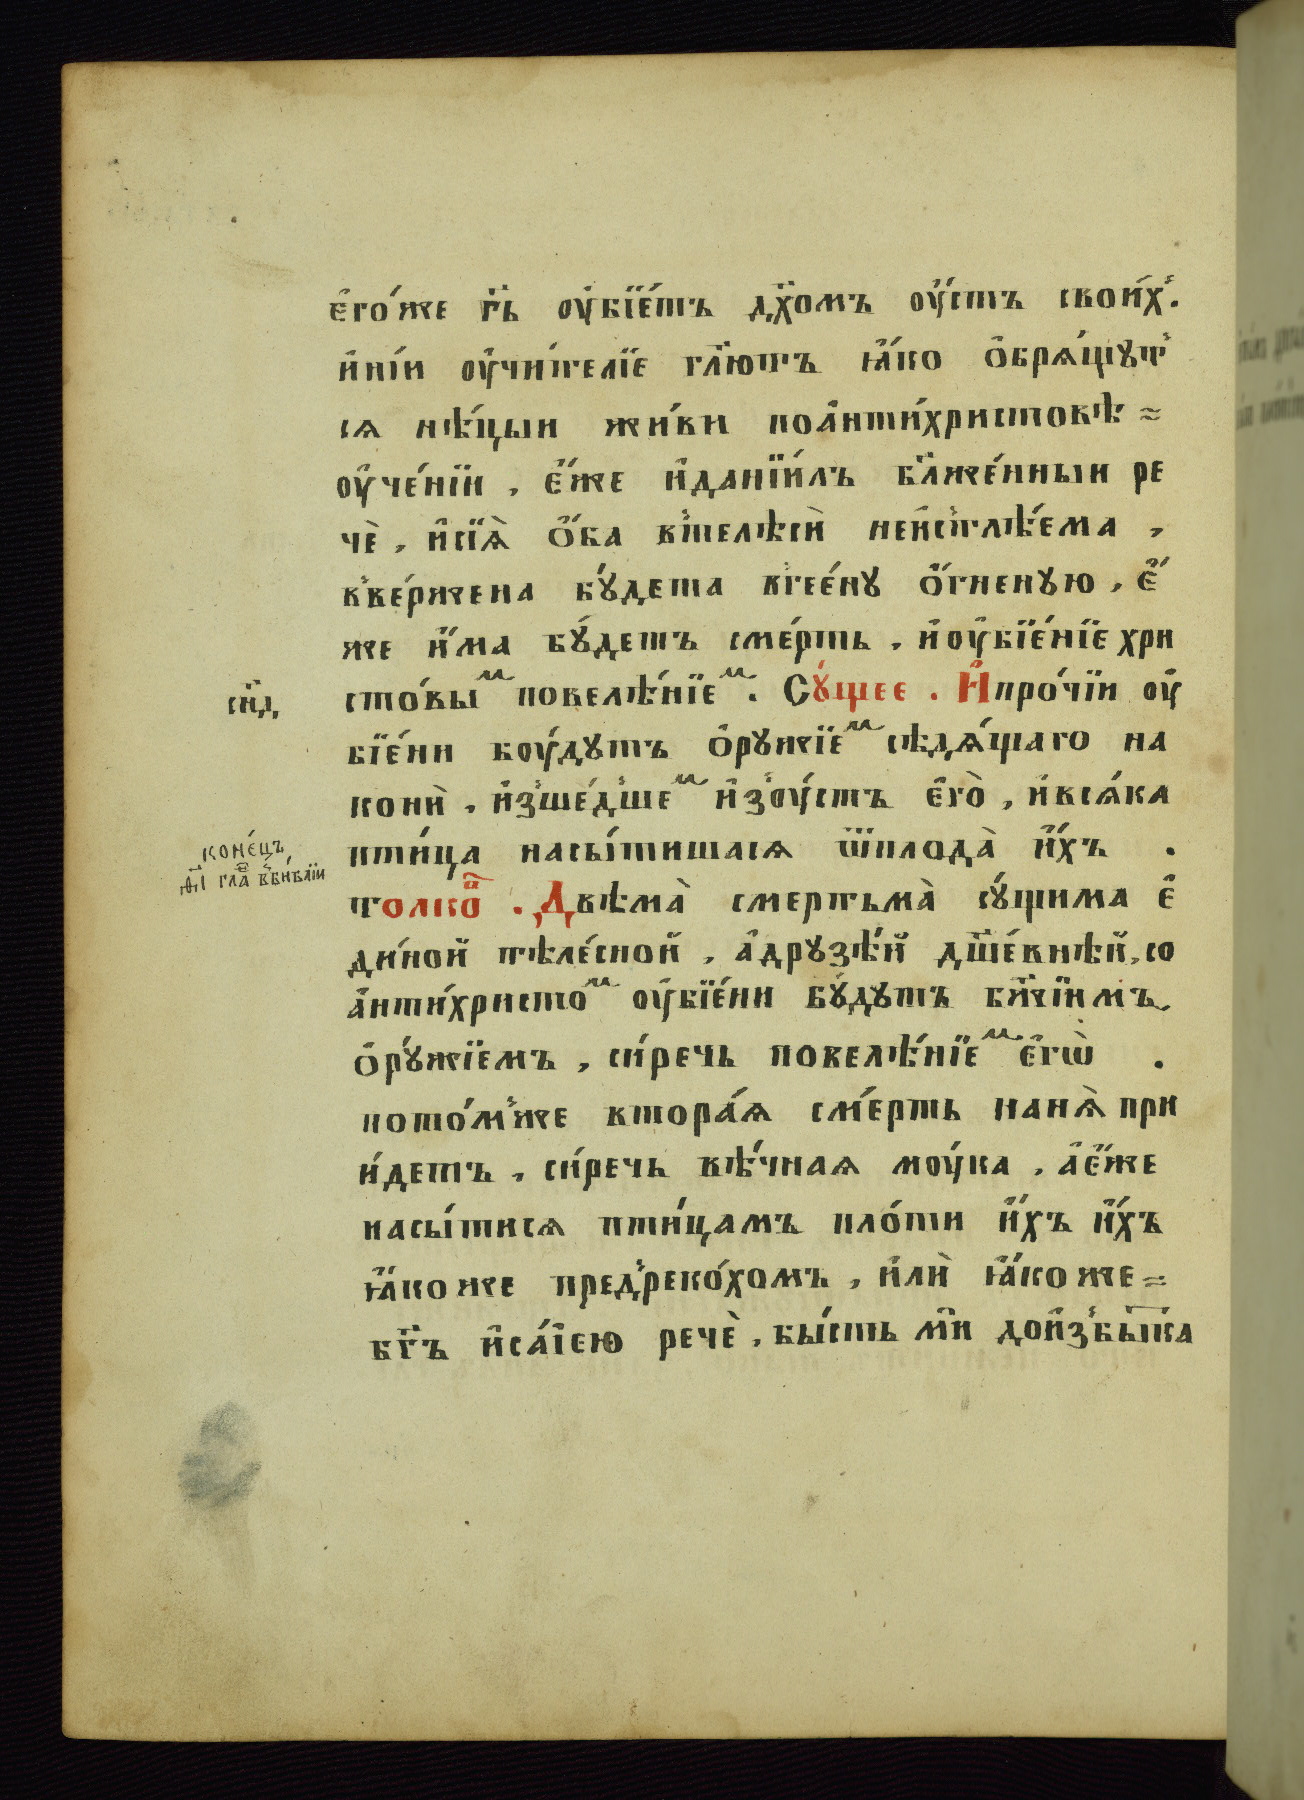 є҆го́же гⷭ҇ь ᲂу҆бїе́тъ дх҃омъ ᲂу҆́стъ свои́х.
и҆ні́и ᲂу҆чи́телїе гл҃ютъ ꙗ҆́ко ѻ҆брѧ́щꙋт
сѧ нѣ́цыи жи́ви поа҆нти́христовѣ
ᲂу҆че́нїи , є҆́же и҆данїи́лъ бл҃же́нныи ре
чѐ , и҆сїѧ̀ ѻ҆́ба втелѣсѝ неи҆стлѣ́ема ,
вве́ржена бꙋ́дета вгее́нꙋ ѻ҆́гненꙋю , є҆́
же и҆́ма бꙋ́детъ сме́рть , и҆ᲂу҆бїе́нїе хри
сто́вым повелѣ́нїем . Сꙋ́щее . И҆про́чїи ᲂу҆
бїе́ни боу́дꙋтъ ѻ҆рꙋжїем сѣдѧ́щаго на
конѝ , и҆зше́дшем и҆зᲂу҆́стъ є҆гѡ̀ , и҆всѧ́ка
пти́ца насы́тишасѧ ѿплода̀ и҆́хъ .
толко́в . Двѣма̀ смертьма̀ сꙋ́щима є҆
ди́ной тѣле́сной , а҆дрꙋзѣ́й дш҃е́внѣй , со
а҆нти́христом ᲂу҆бїе́ни бꙋ́дꙋтъ бж҃їимъ
ѻ҆рꙋ́жїемъ , си́речь повелѣ́нїем є҆гѡ̀ .
пото́мже втора́ѧ сме́рть нанѧ̀ при
и́детъ , си́речь вѣ́чнаѧ моу́ка , а҆є҆́же
насы́тисѧ пти́цамъ пло́ти и҆́хъ и҆́хъ
ꙗ҆́коже предреко́хомъ , и҆лѝ ꙗ҆́коже
бг҃ъ и҆са́їею речѐ , бы́сть мѝ дои҆збы́тка
сн҃д
коне́цъ,
ѳ҃і гла в҆бивлїи